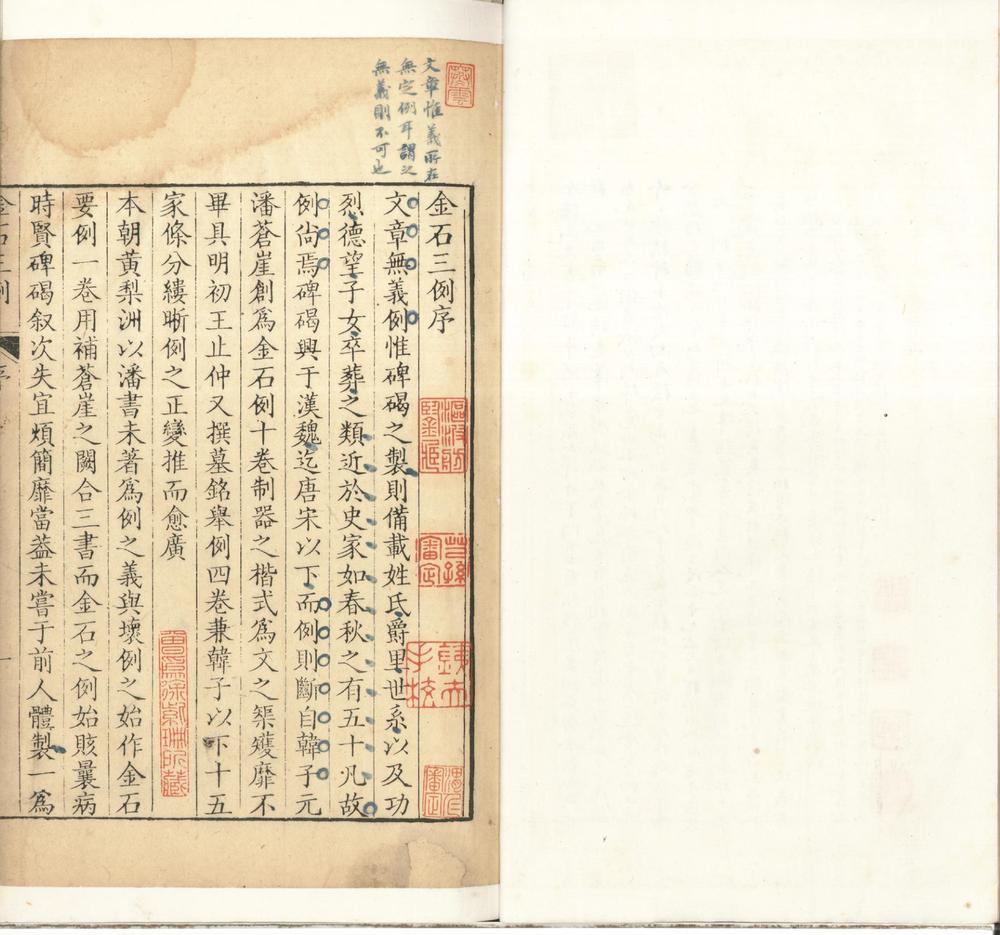 文章惟義所在
無定例耳謂之
無義則不可也
金石三例序
文章無義例惟碑碣之製則備載姓氏爵里世系以及功
烈德望子女卒葬之類近於史家如春秋之有五十凡故
例尙焉碑碣興于漢魏迄唐宋以下而例則斷自韓子元
潘蒼崖創爲金石例十卷制器之楷式爲文之榘矱靡不
畢具明初王止仲又撰墓銘舉例四卷兼韓子以下十五
家條分縷晰例之正變推而愈廣
本朝黃梨洲以潘書未著爲例之義與壞例之始作金石
要例一卷用補蒼崖之闕合三書而金石之例始賅曩病
時賢碑碣叙次失宜煩簡靡當葢未嘗于前人體製一爲
金石三例
序
一